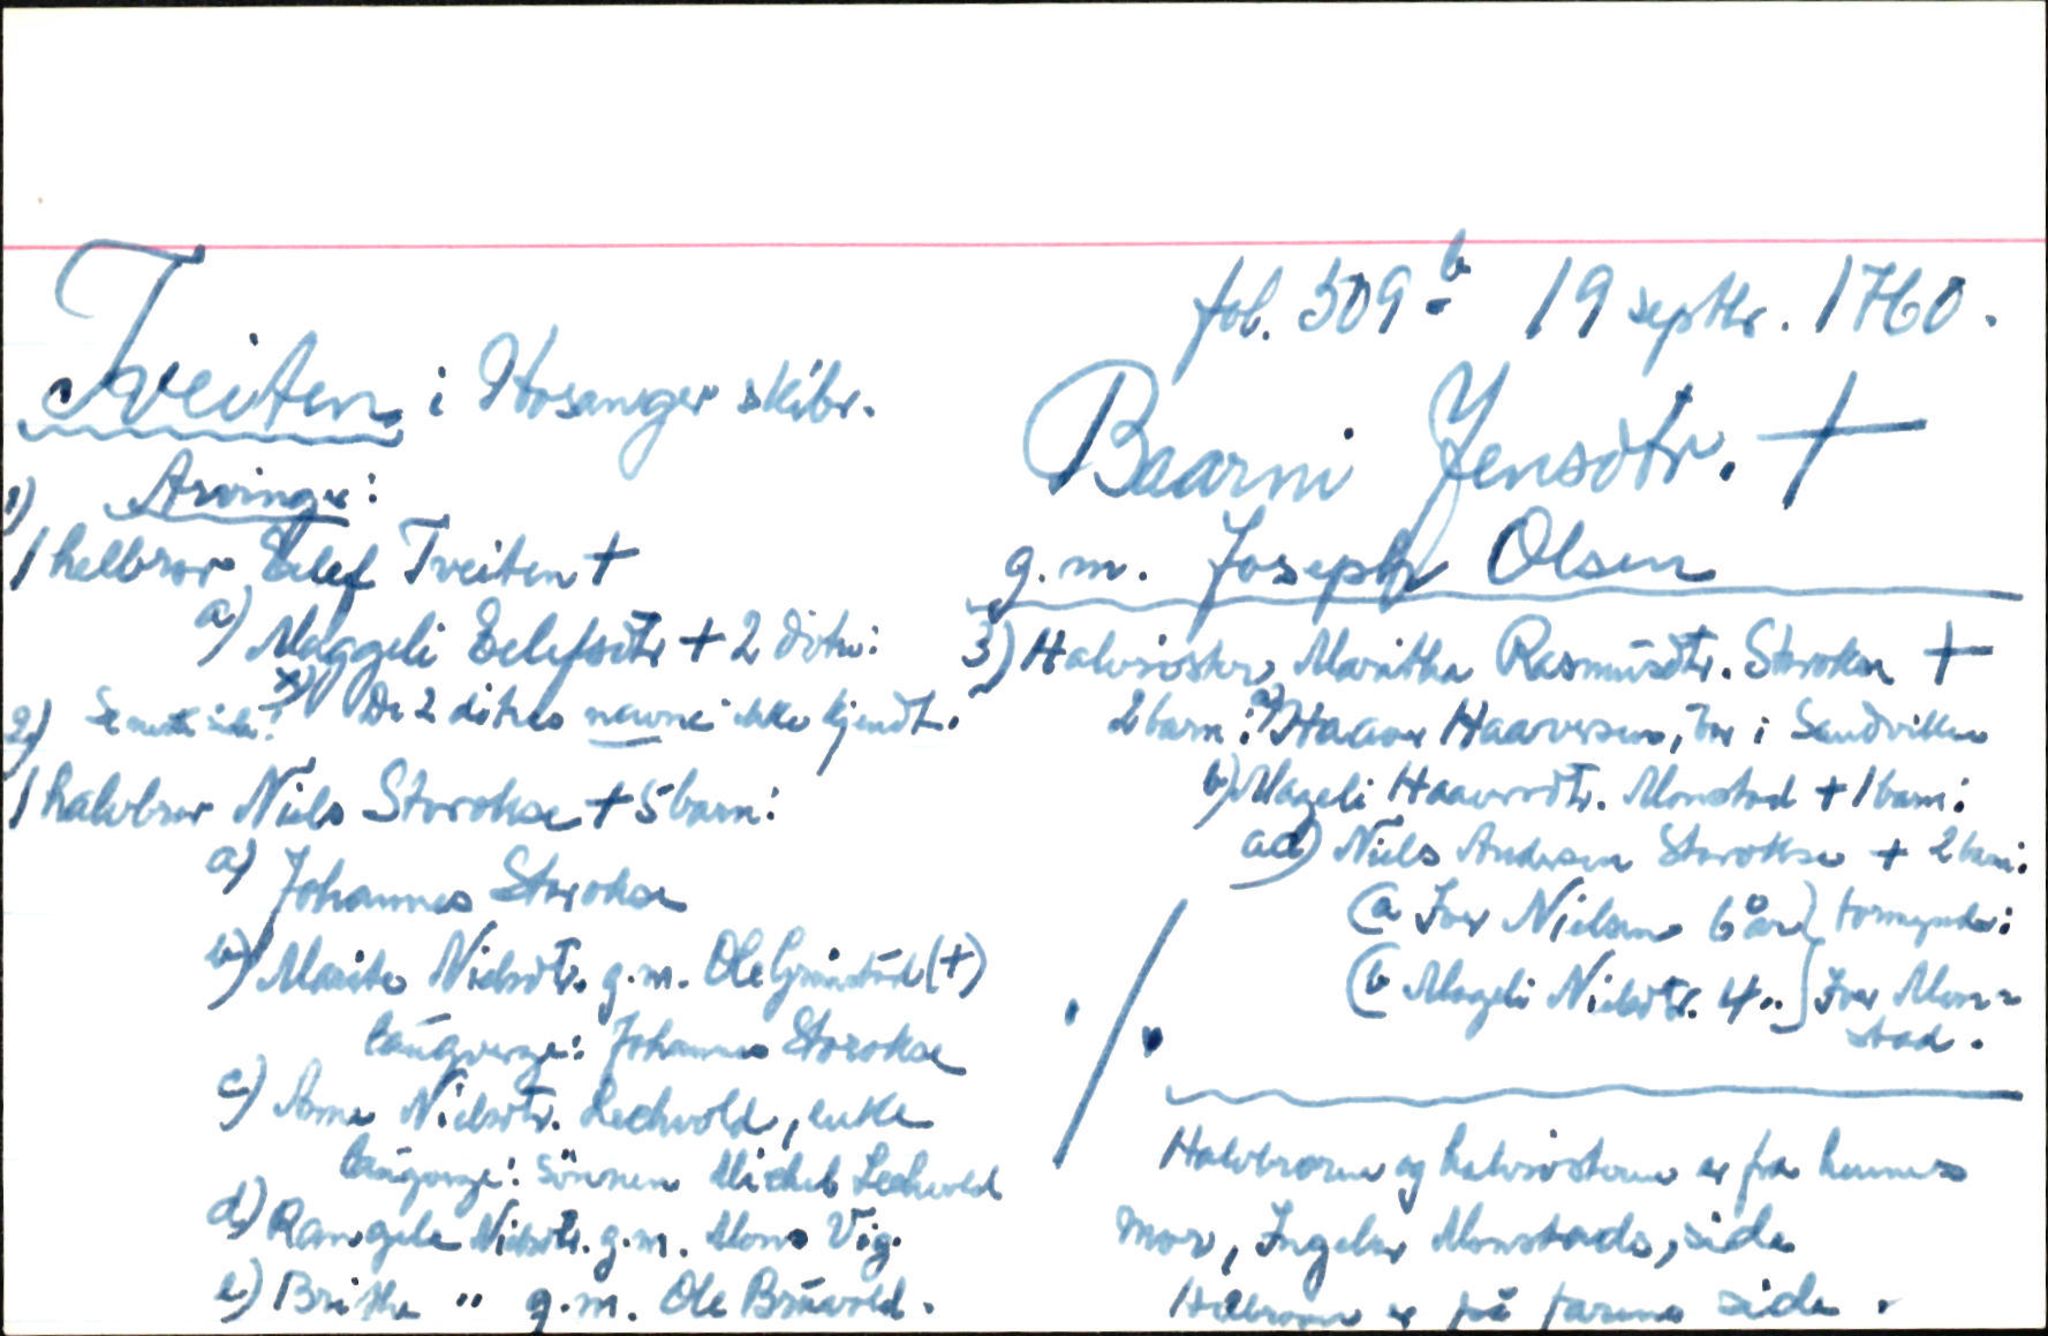 fol. 509 b 19 septbr. 1760.
Tveiten i Hosanger skibr.
Baarni Jensdtr. +
g.m. Joseph Olsen
Arvinger:
1)
1 helbror Eelef Tveiten +
a) Maggeli Eelefsdtr + 2 døtre:
x) De 2 døtres navne ikke kjendt.
Se neste side!
2)
1 halvbror Niels Storokse + 5 barn:
a) Johannes Storokse
b) Marite Nielsdtr. g.m. Ole (+)
laugverge: Johannes Storokse
c) Anna Nielsdtr. Lechvold, enke
laugverge: sönnen Michel Lechvold
d) Rangele Nielsdtr. g.m. Mons Vig.
e) Brithe " g.m. Ole Bruvold.
3) Halvsöster Maritha Rasmusdtr. Storokse +
2 barn: a) Haaver Haaversen, bor i Sandviken
b) Mageli Haaversdtr. Monstad + 1 barn:
aa) Niels Andersen Storokse + 2 barn:
(a Iver Nielsen 6 år } formynder:
(b Mageli Nielsdtr. 4 " } Iver Mon=
stad.
./.
Halvbroren og halvsösteren er fra hennes
mor, Ingeborg Monstads, side
Helbroren er på farens side.